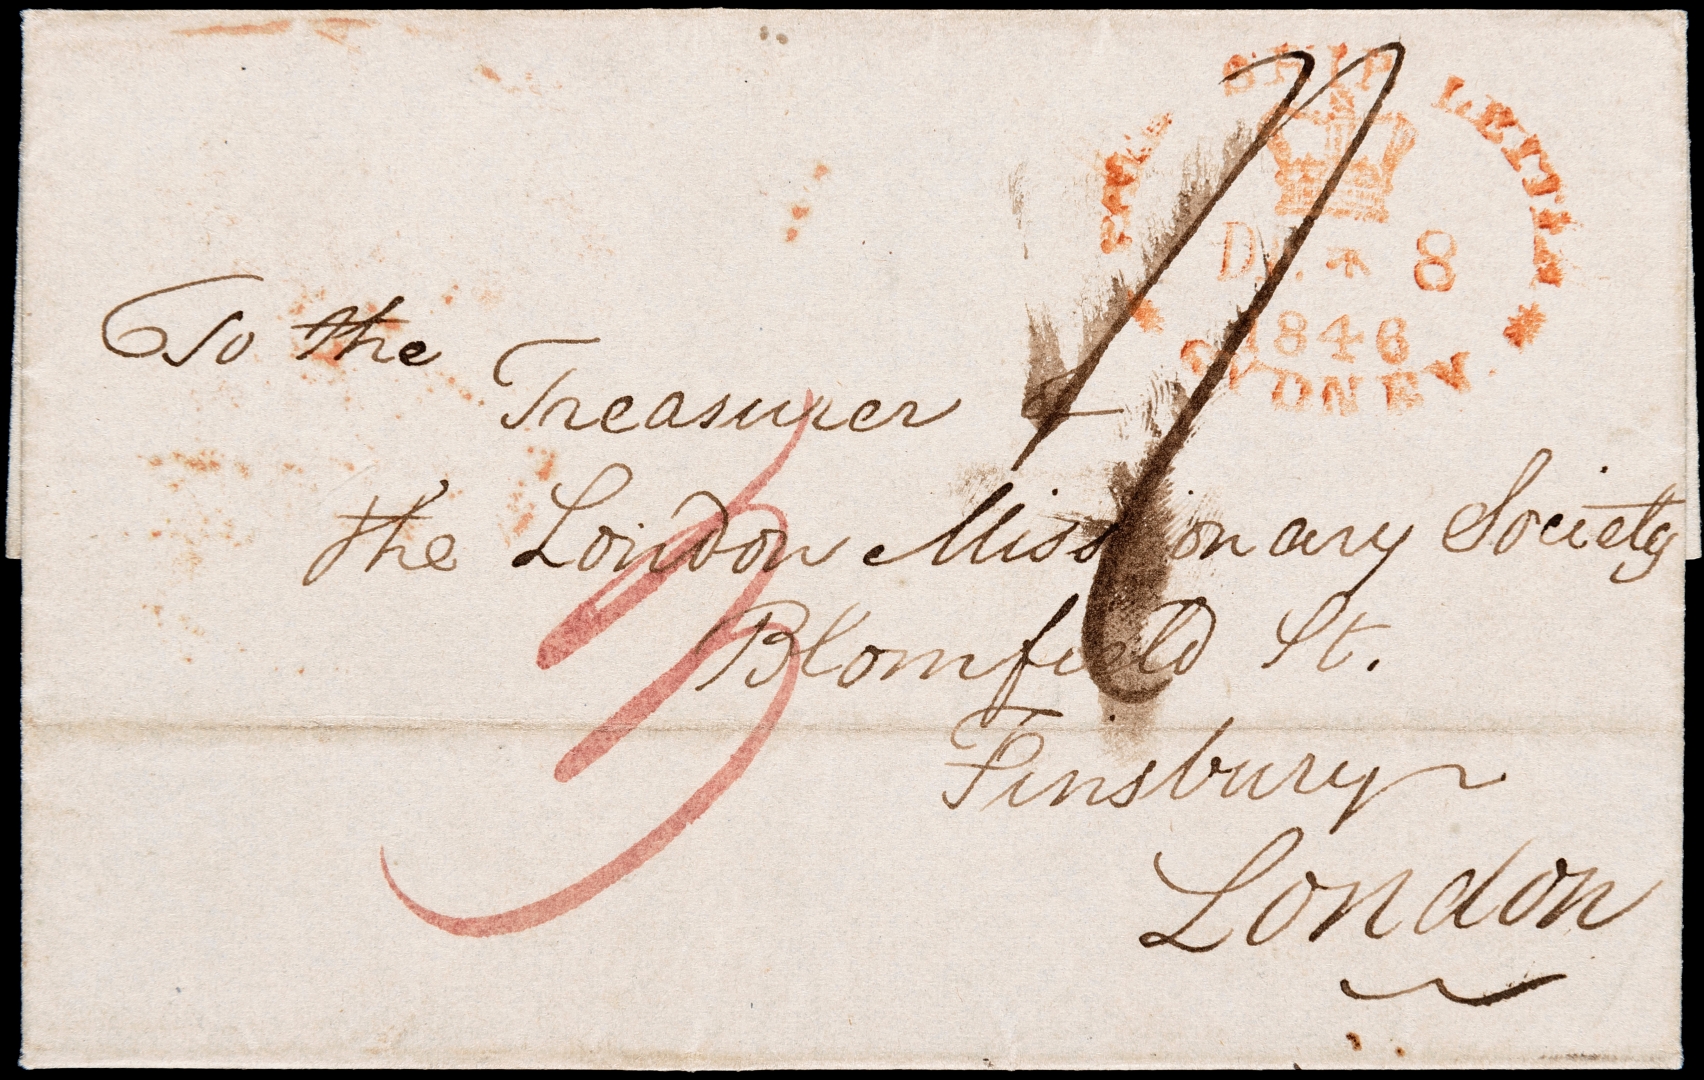 PAID SHIP LETTER
D . 8
1846
SYDNEY
To the
Treasurer of
the London Missionary Society
Blomfield St.
Finsbury
London
3